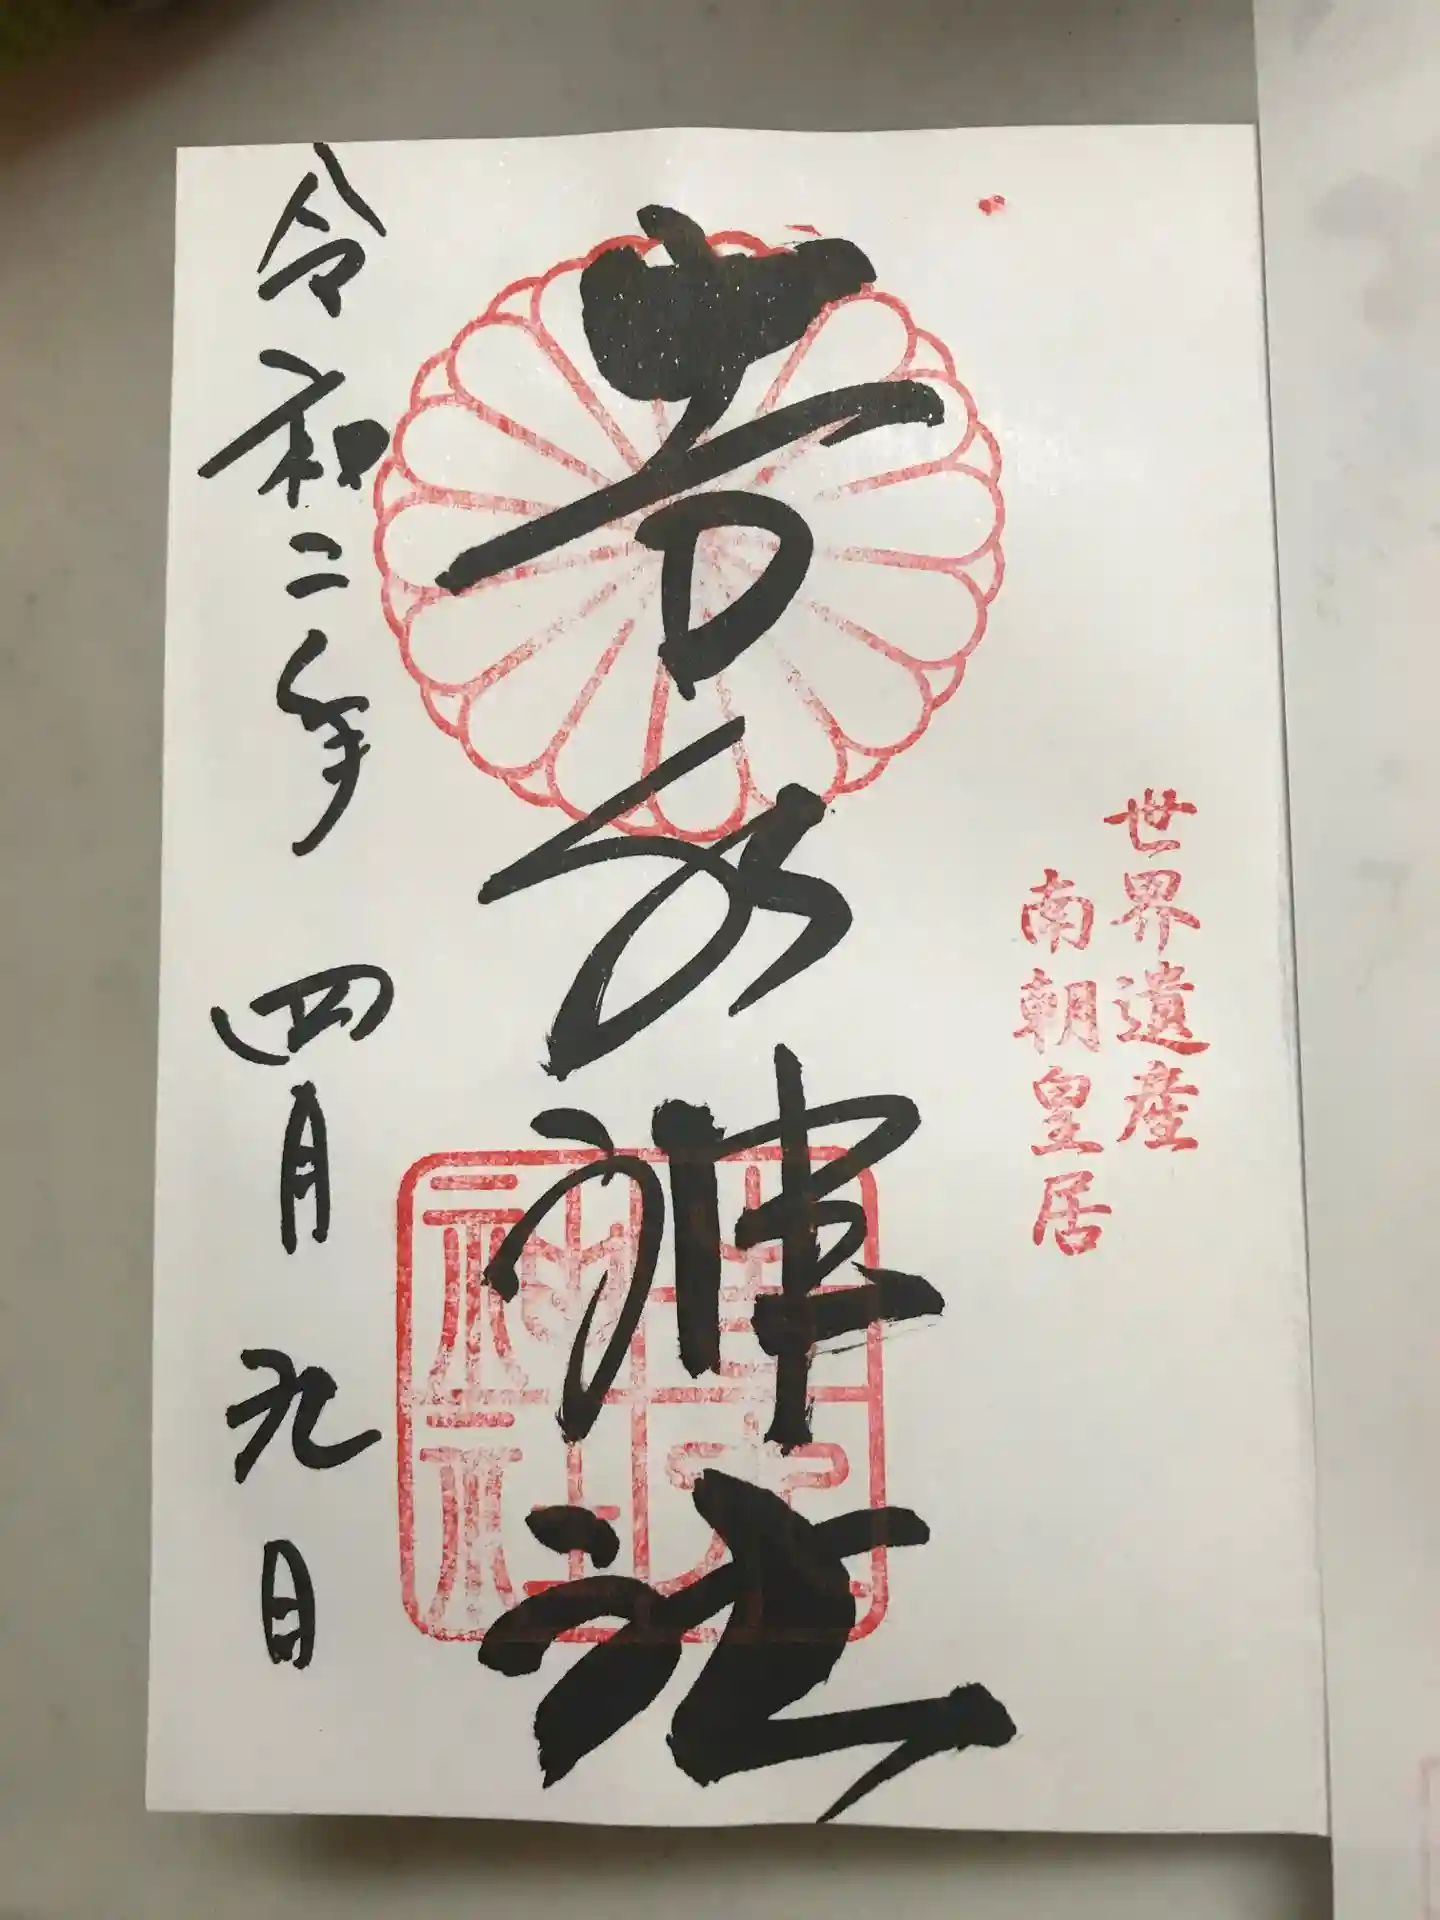 世界遺産
南朝皇居
吉水神社
吉水
神社
令和二年 四月 九日